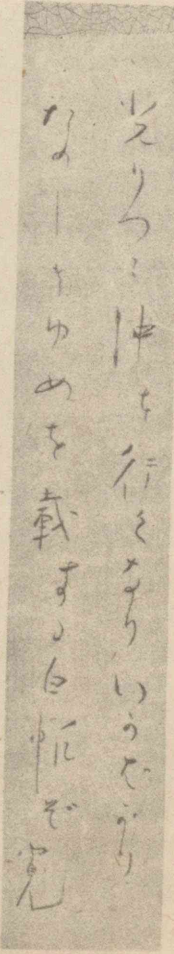 光りつゝ沖を行くなりいかばかり
たのしきゆめを載する白帆ぞ 寛